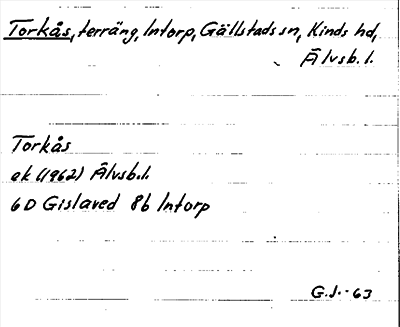 Torkås, terräng, Intorp, Gällstads sn, Kinds hd,
Älvsb. l.
Torkås
ek (1962) Älvsb. l.
6D Gislaved 8b Intorp
G.J.-63